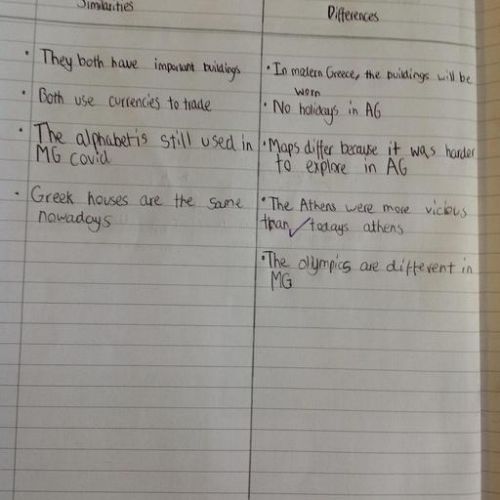 Similarities
Differences
• They both have important buildings
• Both use currencies to trade
• The alphabet is still used in
MG covid
• Greek houses are the same
nowadays
• In modern Greece, the buildings will be
worn
• No holidays in AG
• Maps differ because it was harder
to explore in AG
• The Athens were more vicious
than todays athens
• The olympics are different in
MG